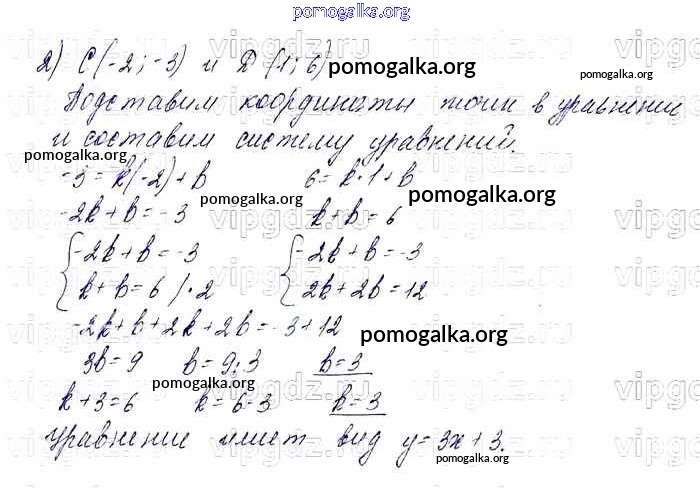 pomogalka.org
2) C(-2; -3) и D (1; 6) pomogalka.org
Подставим координаты точки в уравнение
и составим систему уравнений.
pomogalka.org
-3 = k(-2)+b 6 = k·1+b
pomogalka.org pomogalka.org
-2k+b=-3 k+b=6
{-2k+b=-3 {-2k+b=-3
k+b=6 /·2 2k+2b=12
-2k+b+2k+2b=-3+12 pomogalka.org
3b=9 b=9:3 b=3
pomogalka.org
k+3=6 k=6-3 k=3
Уравнение имеет вид y=3x+3.
pomogalka.org